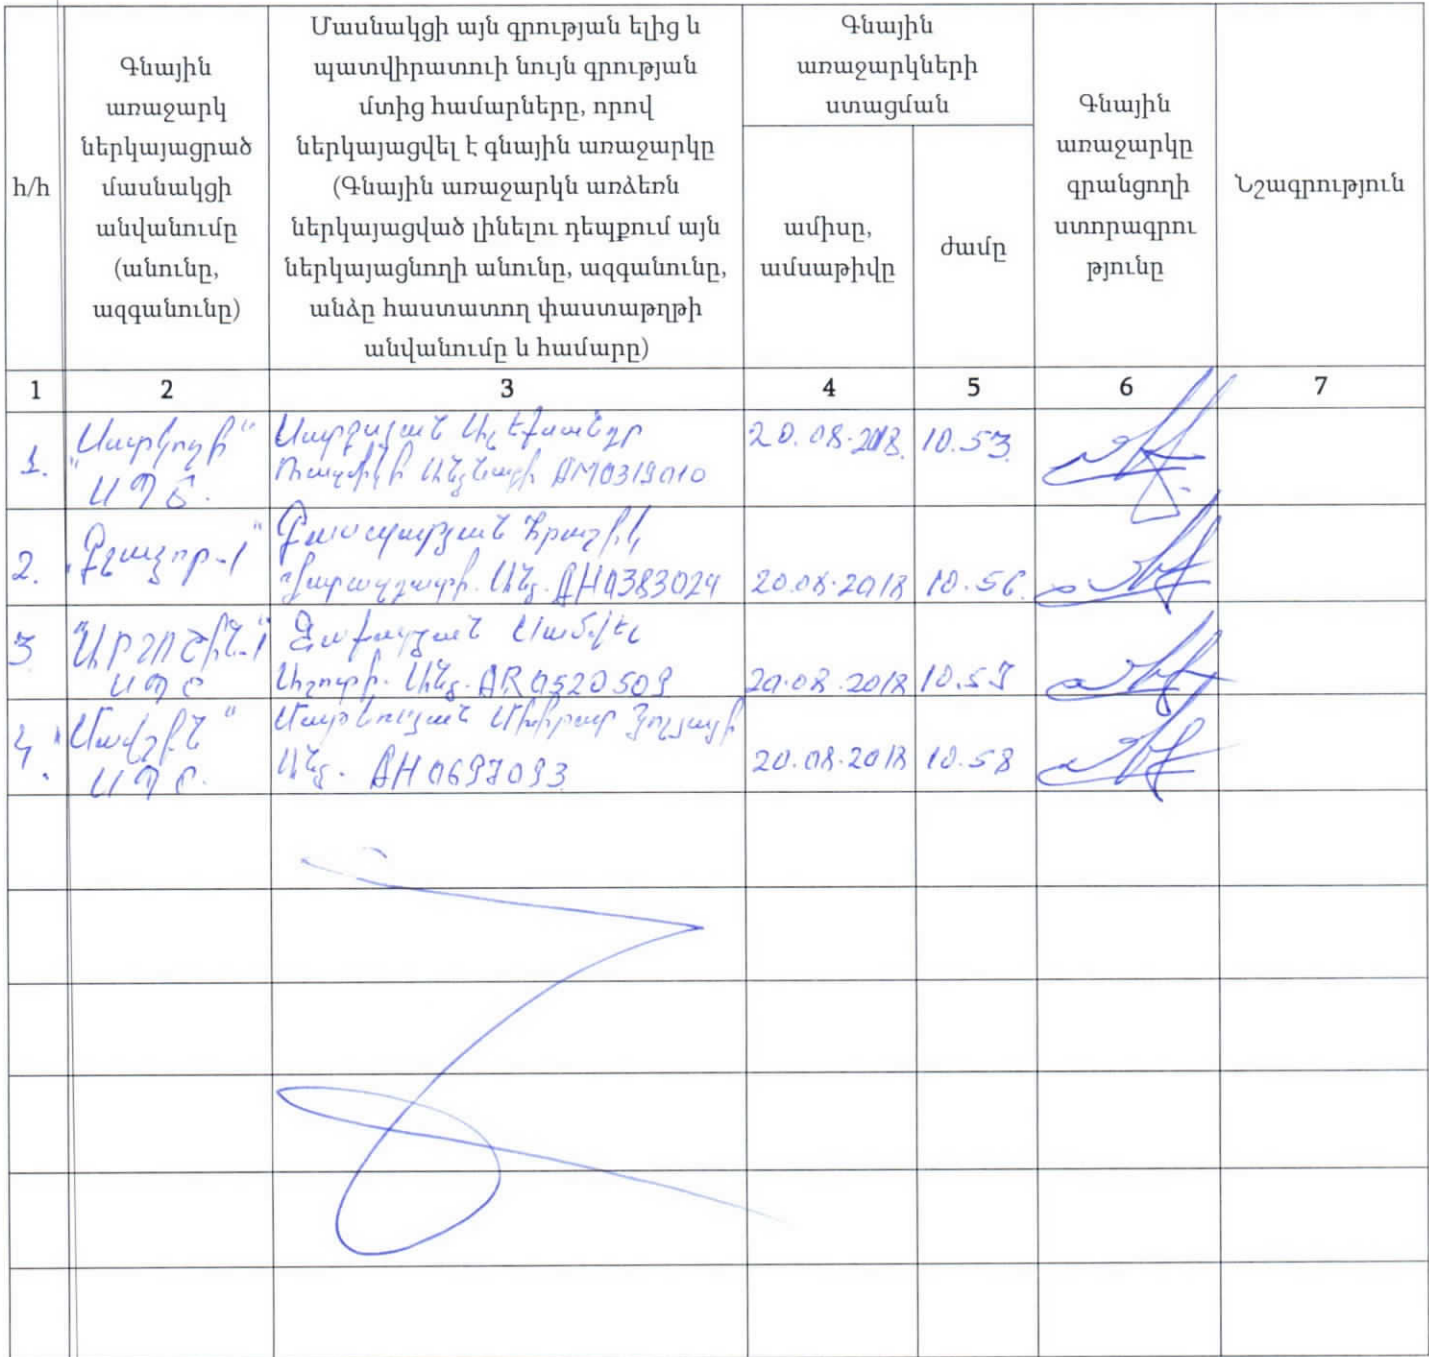 h/h
Գնային
առաջարկ
ներկայացրած
մասնակցի
անվանումը
(անունը,
ազգանունը)
Մասնակցի այն գրության ելից և
պատվիրատուի նույն գրության
մտից համարները, որով
ներկայացվել է գնային առաջարկը
(Գնային առաջարկն առձեռն
ներկայացված լինելու դեպքում այն
ներկայացնողի անունը, ազգանունը,
անձը հաստատող փաստաթղթի
անվանումը և համարը)
Գնային
առաջարկների
ստացման
ամիսը,
ամսաթիվը
ժամը
Գնային
առաջարկը
գրանցողի
ստորագրու
թյունը
Նշագրություն
1 2 3 4 5 6 7
1.
ՍՊԸ.
Սարգսյան Ալեքսանդր
AM0319010
20.08.2018. 10.53
2.
Գասպարյան Հրաչիկ
Անձ. AH0383024
20.08.2018 10.56.
3
ՍՊԸ
Սամվել
Աշոտի. Անձ. AR0520509
20.08.2018 10.57
4.
"Մավշին"
ՍՊԸ.
Մխիթար
Անձ. AH0697093
20.08.2018 10.58